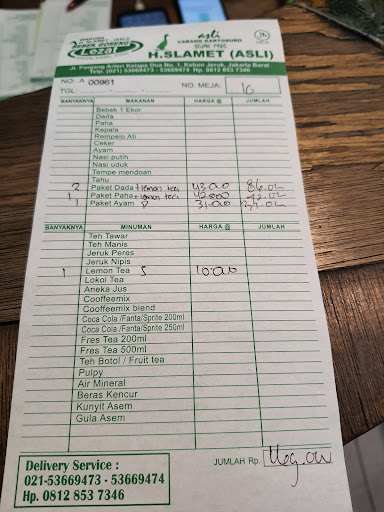 WARUNG H. SLAMET (ASLI)
BEBEK GORENG
Lezat
asli
CABANG KARTOSURO
H.SLAMET (ASLI)
Jl. Panjang Arteri Kelapa Dua No. 1, Kebon Jeruk, Jakarta Barat
Telp. (021) 53669473 - 53669474 Hp. 0812 853 7346
NO. A 00961
NO. MEJA: 16
TGL.
BANYAKNYA MAKANAN HARGA @ JUMLAH
Bebek 1 Ekor
Dada
Paha
Kepala
Rempelo Ati
Ceker
Ayam
Nasi putih
Nasi uduk
Tempe mendoan
Tahu
2 Paket Dada + lemon tea 43.000 86.000
1 Paket Paha + lemon tea 42.000 42.000
1 Paket Ayam P 31.000 31.000
BANYAKNYA MINUMAN HARGA @ JUMLAH
Teh Tawar
Teh Manis
Jeruk Peres
Jeruk Nipis
1 Lemon Tea 10.000
Lokol Tea
Aneka Jus
Cooffeemix
Cooffeemix blend
Coca Cola /Fanta/Sprite 200ml
Coca Cola /Fanta/Sprite 250ml
Fres Tea 200ml
Fres Tea 500ml
Teh Botol / Fruit tea
Pulpy
Air Mineral
Beras Kencur
Kunyit Asem
Gula Asem
JUMLAH Rp.
Delivery Service :
021-53669473 - 53669474
Hp. 0812 853 7346